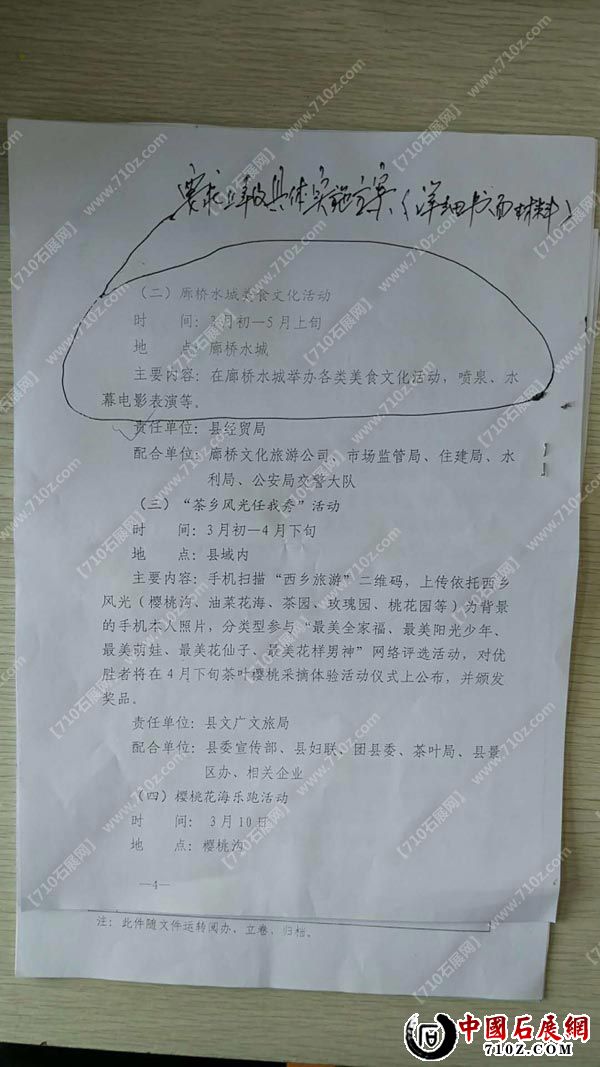 要求上年及具体实施方案(详细书面材料)
（二）廊桥水城美食文化活动
时 间：3月初—5月上旬
地 点：廊桥水城
主要内容：在廊桥水城举办各类美食文化活动，喷泉、水
幕电影表演等。
责任单位：县经贸局
配合单位：廊桥文化旅游公司、市场监管局、住建局、水
利局、公安局交警大队
（三）“茶乡风光任我秀”活动
时 间：3月初—4月下旬
地 点：县域内
主要内容：手机扫描“西乡旅游”二维码，上传依托西乡
风光（樱桃沟、油菜花海、茶园、玫瑰园、桃花园等）为背景
的手机本人照片，分类型参与“最美全家福、最美阳光少年、
最美萌娃、最美花仙子、最美花样男神”网络评选活动，对优
胜者将在4月下旬茶叶樱桃采摘体验活动仪式上公布，并颁发
奖品。
责任单位：县文广文旅局
配合单位：县委宣传部、县妇联、团县委、茶叶局、县景
区办、相关企业
（四）樱桃花海乐跑活动
时 间： 3月10日
地 点：樱桃沟
—4—
注：此件随文件运转阅办、立卷，归档。
【710石展网】www.710z.com
中國石展網
710Z.COM